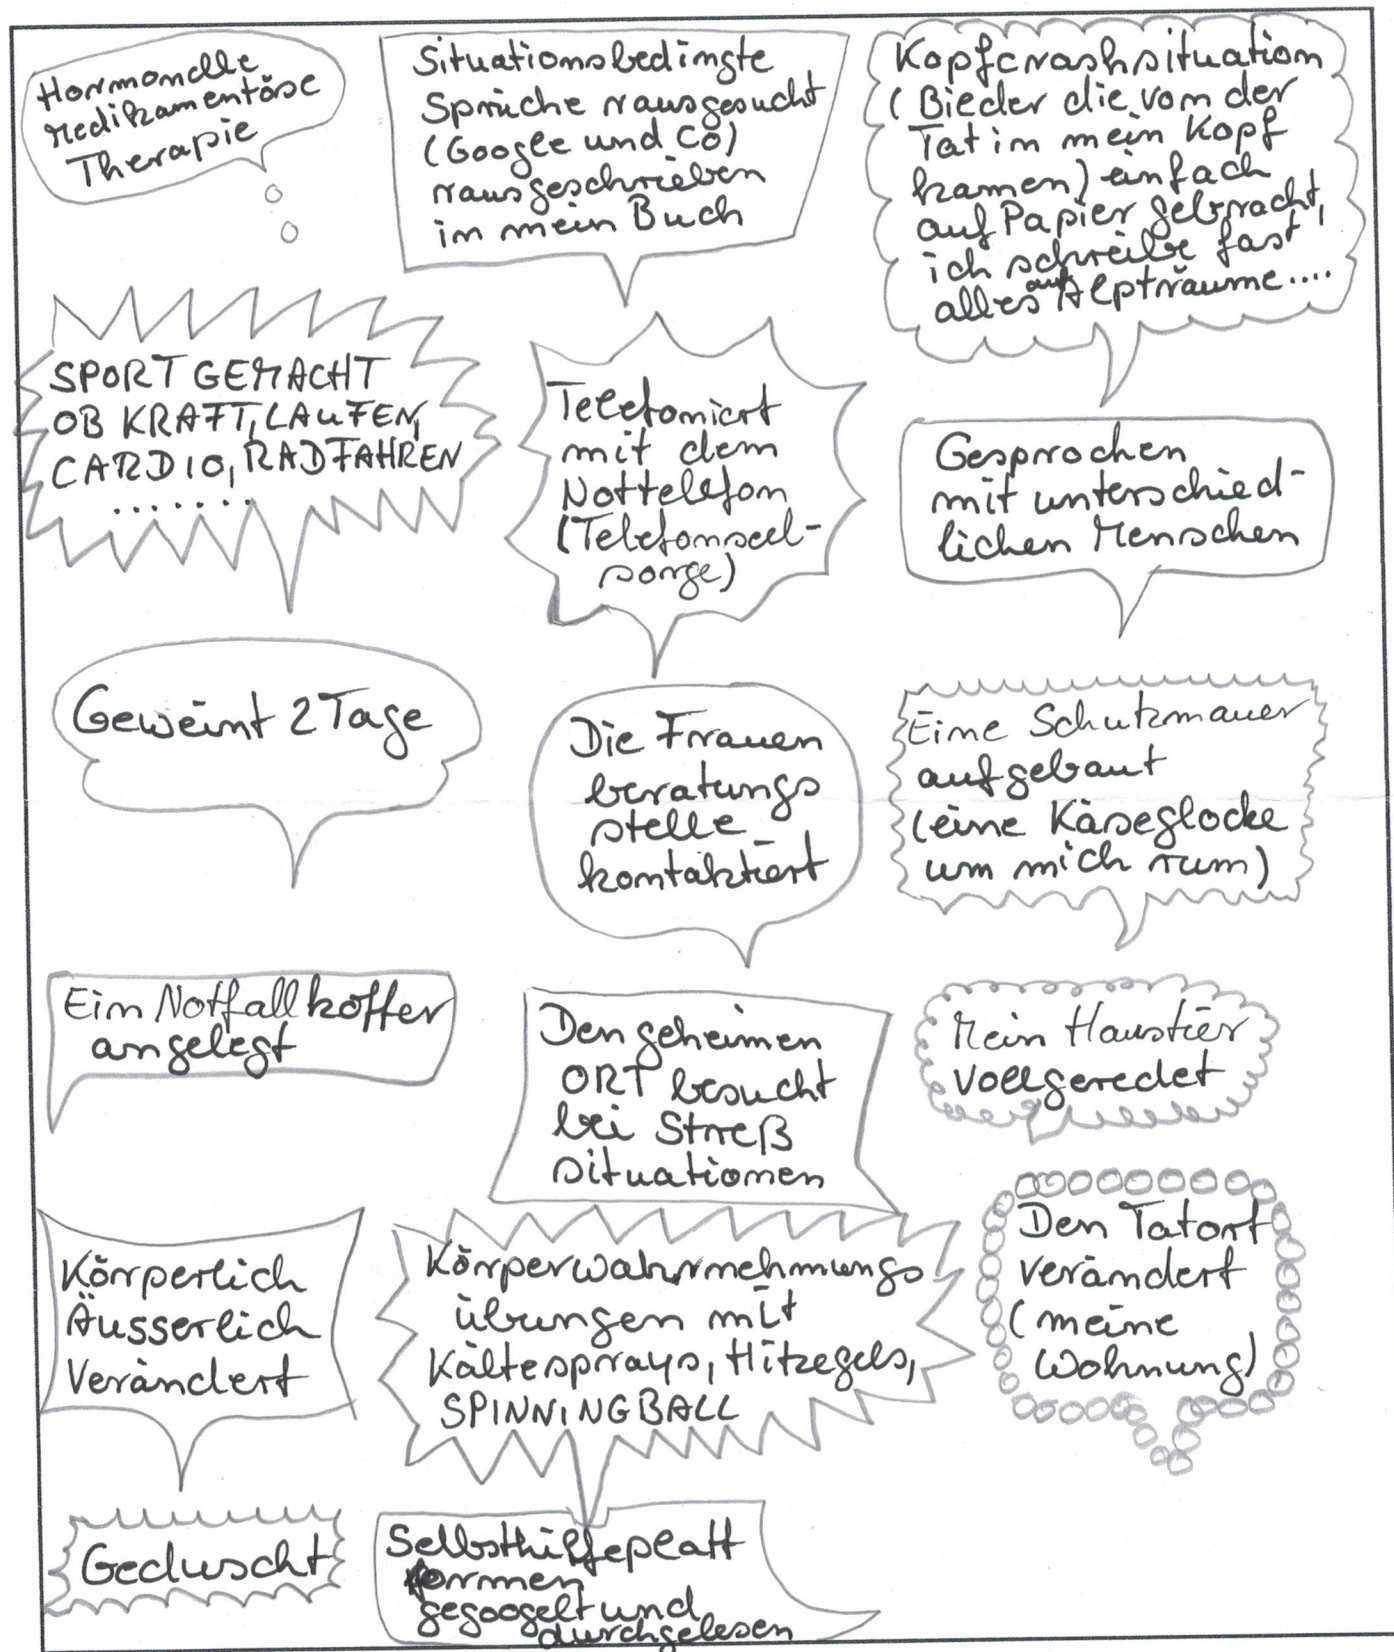 Hormonelle
Medikamentöse
Therapie
Situationsbedingte
Sprüche rausgesucht
(Google und CO)
rausgeschrieben
in mein Buch
Kopfcrashsituation
(Bieder die von der
Tat in mein Kopf
kamen) einfach
auf Papier gebracht,
ich schreibe fast
alles auf Alpträume....
SPORT GEMACHT
OB KRAFT, LAUFEN,
CARDIO, RADFAHREN
.......
Telefoniert
mit dem
Nottelefon
(Telefonseel-
sorge)
Gesprochen
mit unterschied-
lichen Menschen
Geweint 2 Tage
Die Frauen
beratungs
stelle
kontaktiert
Eine Schutzmauer
aufgebaut
(eine Käseglocke
um mich rum)
Ein Notfallkoffer
angelegt
Den geheimen
ORT besucht
bei Streß
situationen
Mein Haustier
vollgeredet
Körperlich
Äusserlich
Verändert
Körperwahrnehmungs
übungen mit
Kältesprays, Hitzegels,
SPINNINGBALL
Den Tatort
verändert
(meine
Wohnung)
Geduscht
Selbsthilfeplatt
formen
gegoogelt und
durchgelesen